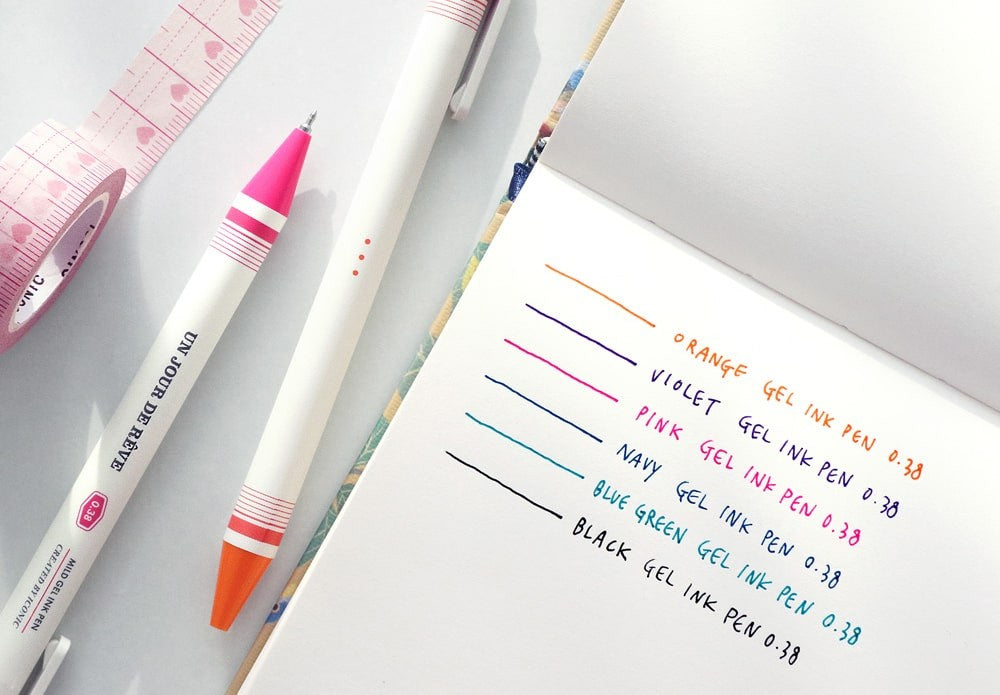 ICONIC
UN JOUR DE RÊVE
0.38
MILD GEL INK PEN
CREATED BY ICONIC
ORANGE GEL INK PEN 0.38
VIOLET GEL INK PEN 0.38
PINK GEL INK PEN 0.38
NAVY GEL INK PEN 0.38
BLUE GREEN GEL INK PEN 0.38
BLACK GEL INK PEN 0.38